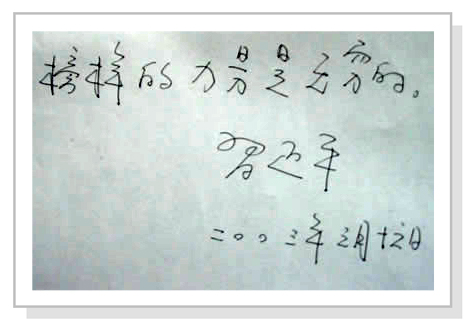 榜样的力量是无穷的。
习近平
二〇〇三年三月